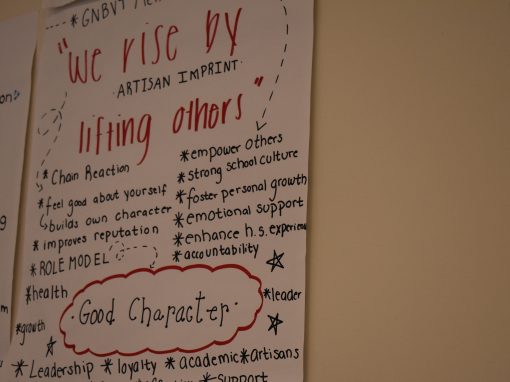 * GNBVT
"We rise by
·ARTISAN IMPRINT·
lifting others"
* Chain Reaction
* feel good about yourself
builds own character
* improves reputation
* ROLE MODEL
* empower others
* strong school culture
* foster personal growth
* emotional support
* enhance h.s. experience
* accountability
* health
* growth
·Good Character·
* leader
* Leadership * loyalty * academic * artisans
* support